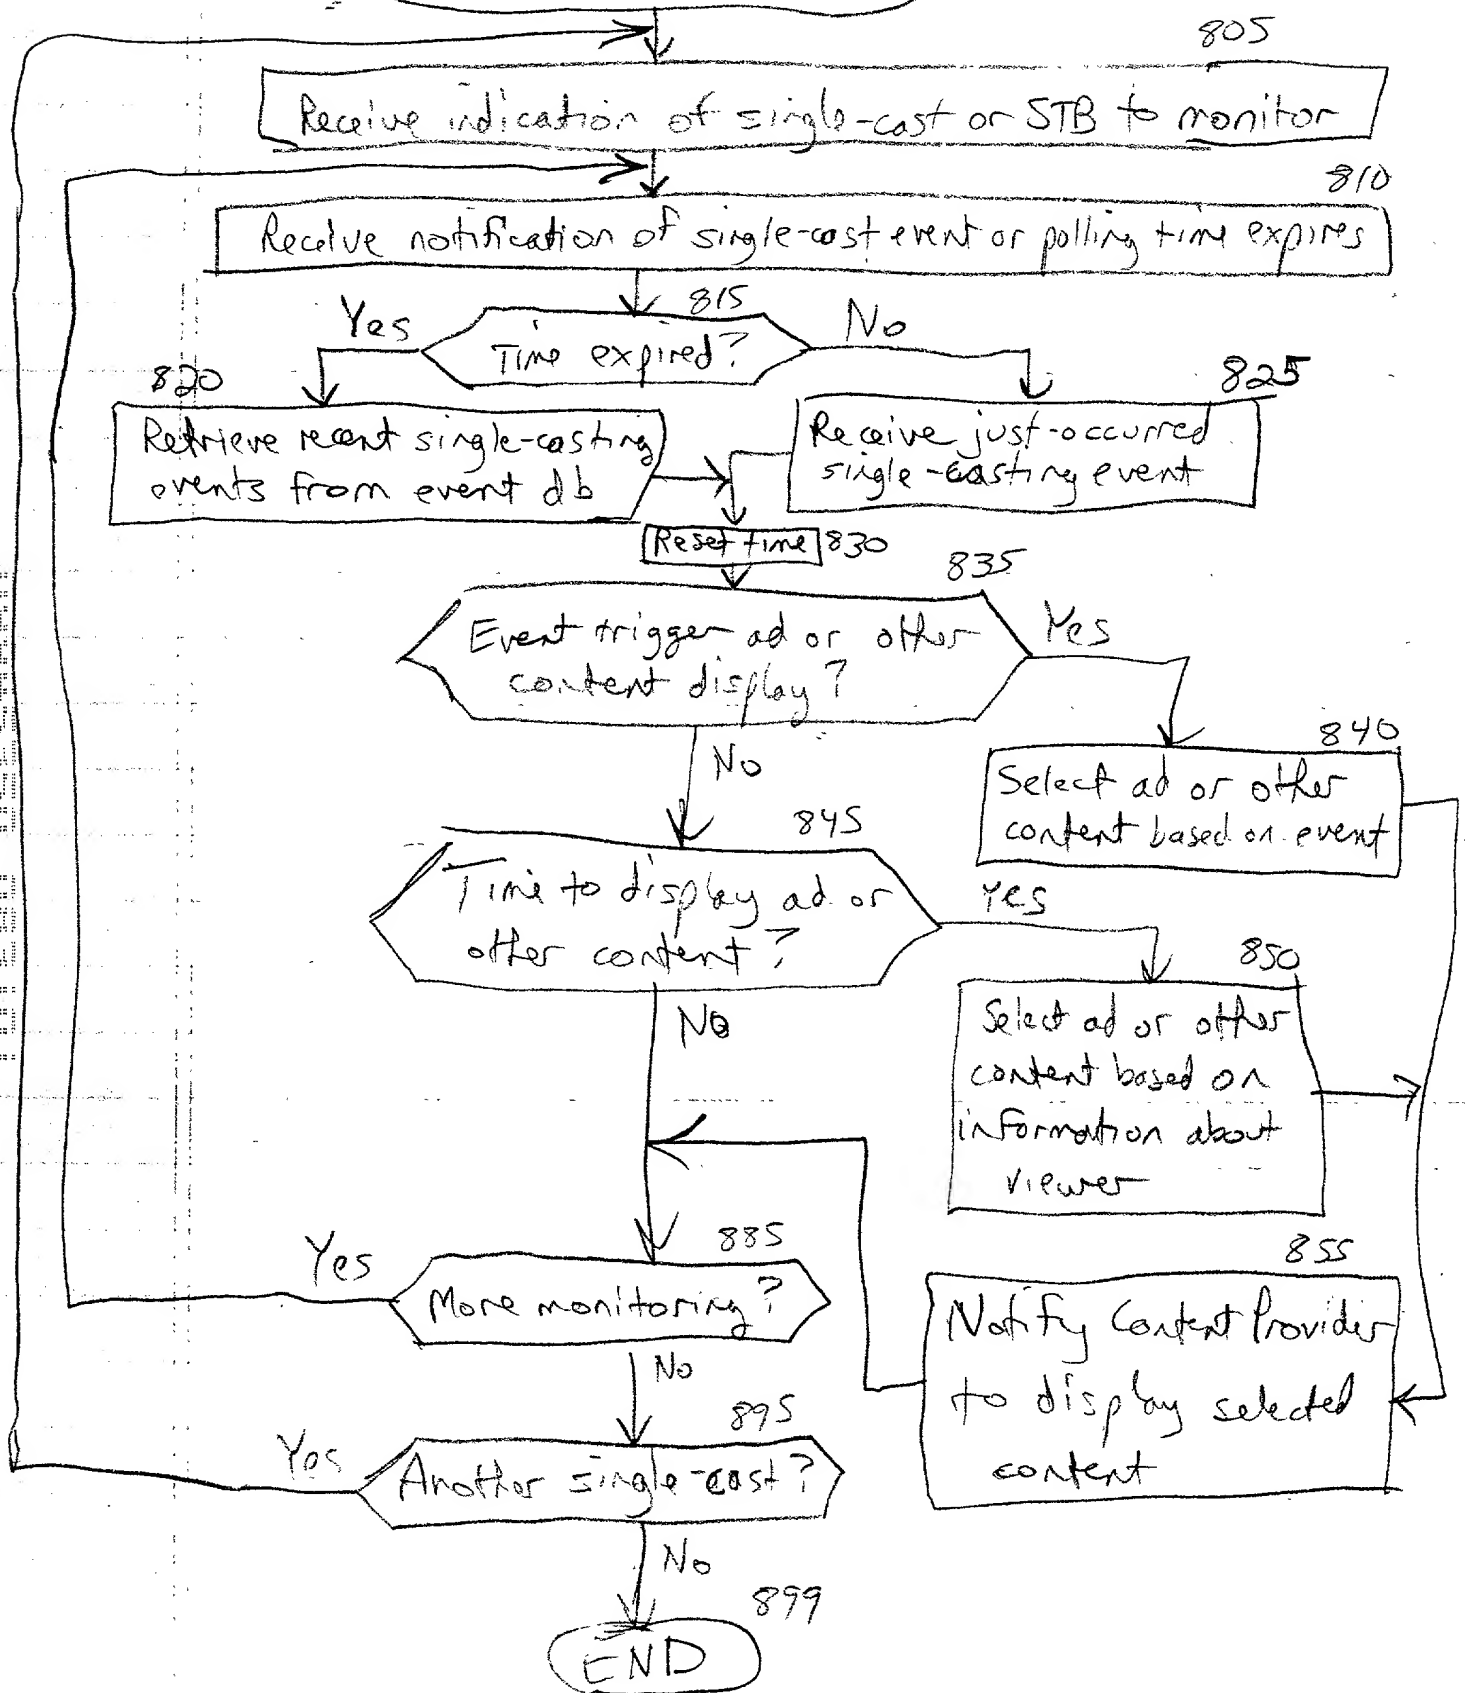 805
Receive indication of single-cast or STB to monitor
810
Receive notification of single-cast event or polling time expires
815
Yes
No
Time expired?
820
825
Retrieve recent single-casting
events from event db
Receive just-occurred
single-casting event
Reset time
830
835
Event trigger ad or other
content display?
Yes
No
840
Select ad or other
content based on event
845
Time to display ad or
other content?
Yes
No
850
Select ad or other
content based on
information about
viewer
885
Yes
More monitoring?
No
855
Notify Content Provider
to display selected
content
895
Yes
Another single-cast?
No
899
END